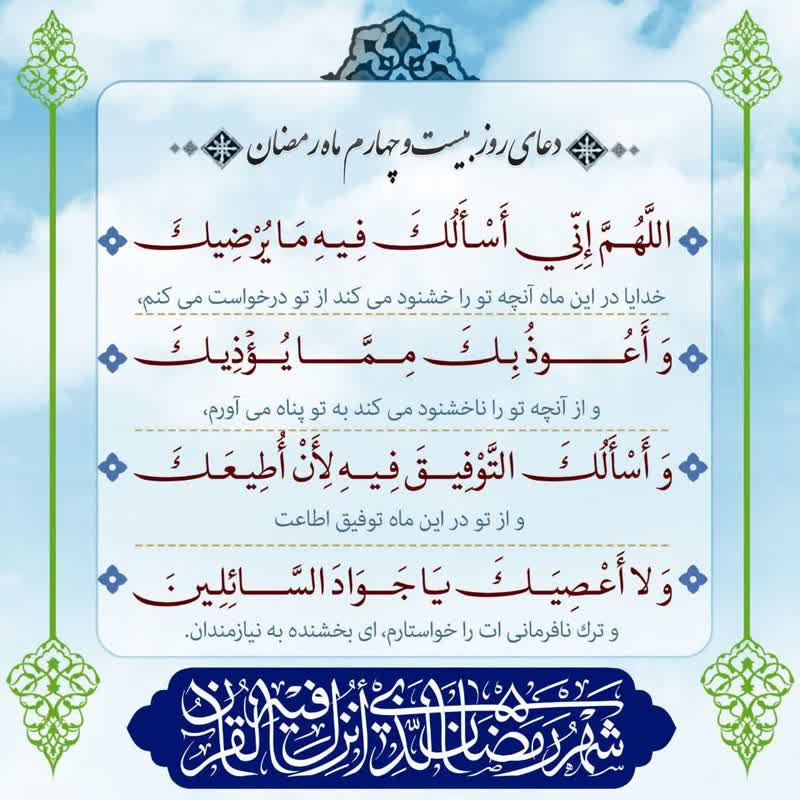 دعای روز بیست و چهارم ماه رمضان
اللَّهُمَّ إِنِّي أَسْأَلُكَ فِيهِ مَا يُرْضِيكَ
خدایا در این ماه آنچه تو را خشنود می کند از تو درخواست می کنم،
وَ أَعُوذُ بِكَ مِمَّا يُؤْذِيكَ
و از آنچه تو را ناخشنود می کند به تو پناه می آورم،
وَ أَسْأَلُكَ التَّوْفِيقَ فِيهِ لِأَنْ أُطِيعَكَ
و از تو در این ماه توفیق اطاعت
وَ لا أَعْصِيَكَ يَا جَوَادَ السَّائِلِينَ
و ترك نافرمانی ات را خواستارم، ای بخشنده به نیازمندان.
شَهْرُ رَمَضَانَ الَّذِي أُنزِلَ فِيهِ الْقُرْآنُ